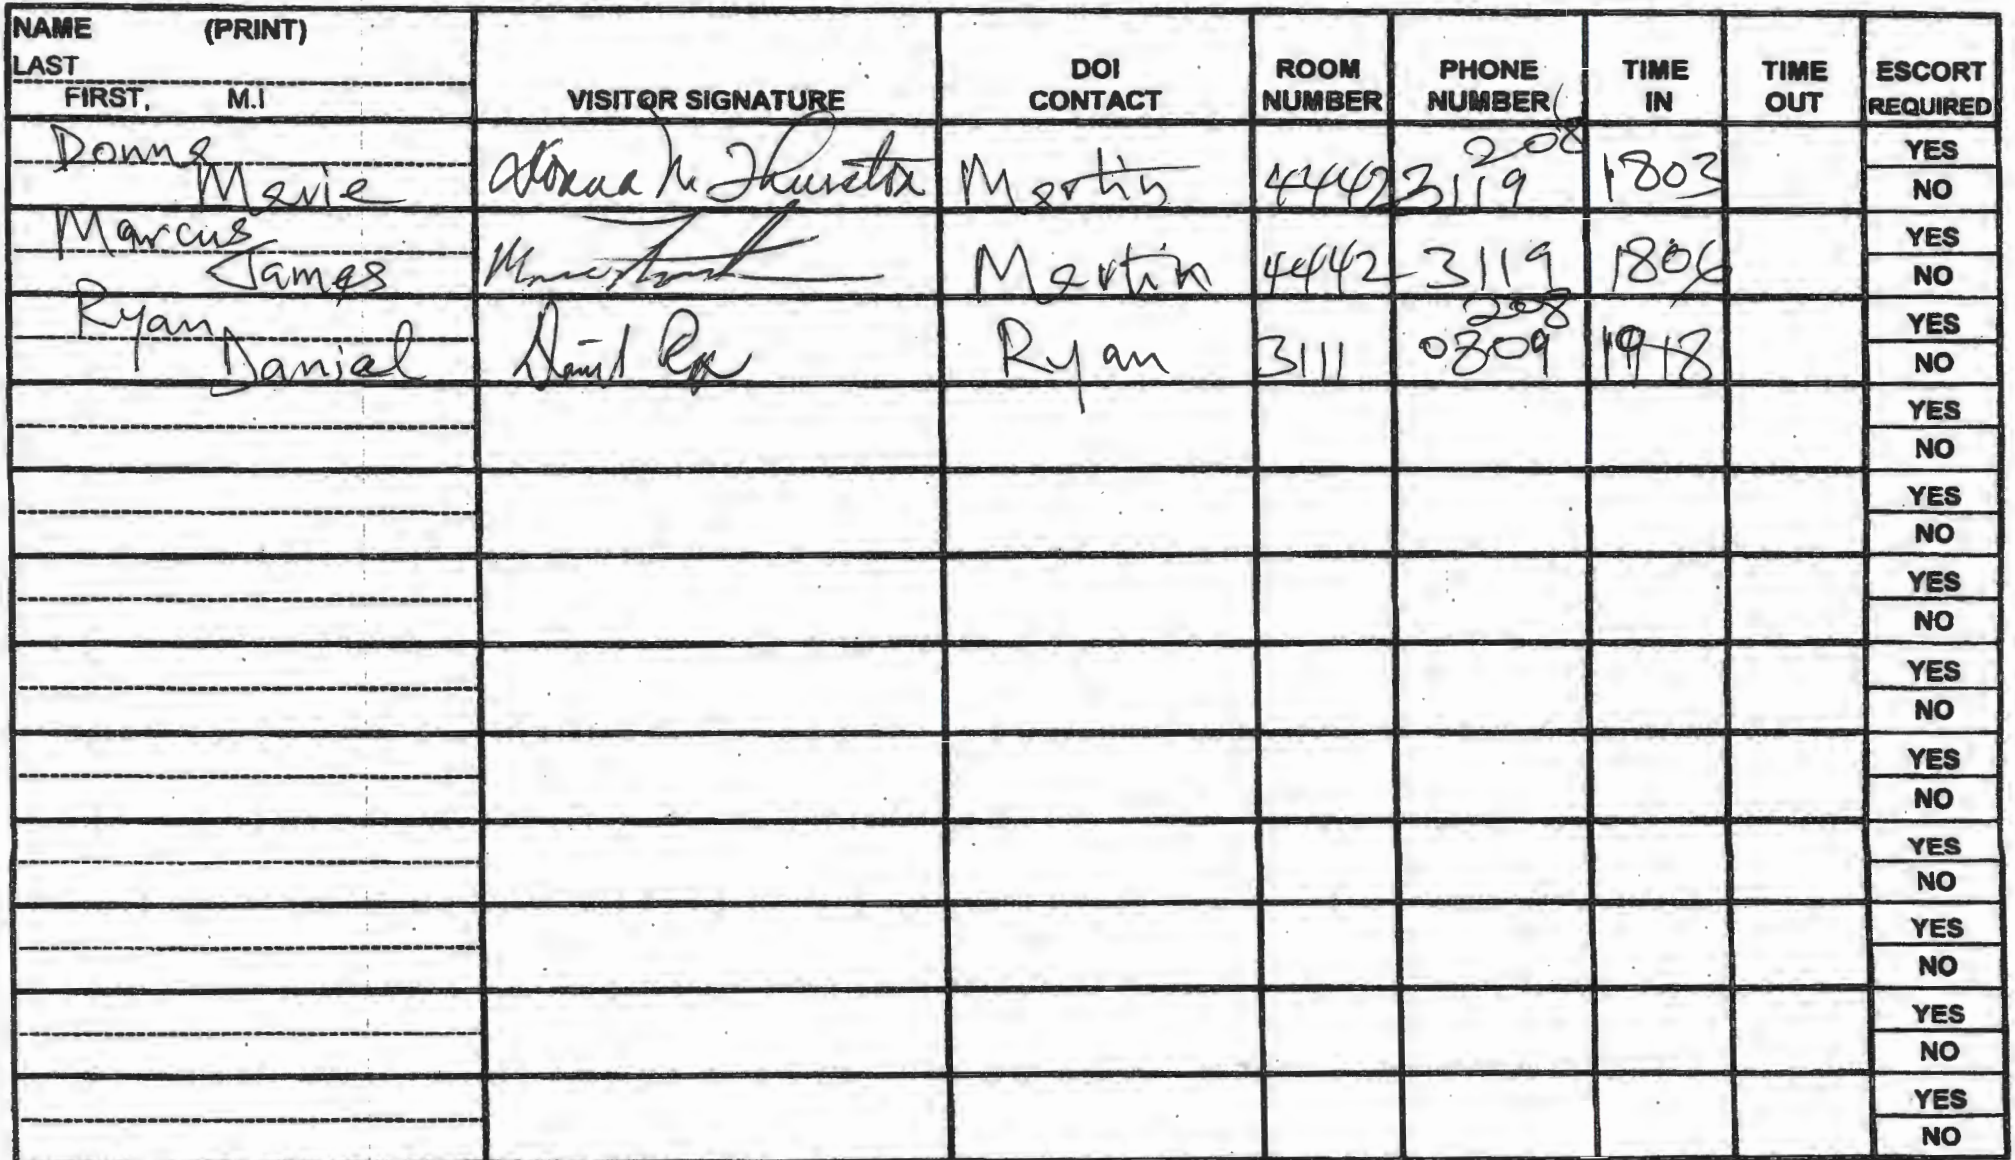 NAME (PRINT)
LAST
FIRST, M.I
VISITOR SIGNATURE
DOI CONTACT
ROOM NUMBER
PHONE NUMBER
TIME IN
TIME OUT
ESCORT REQUIRED
Donna
Marie
Donna M Thurston
Martin
4442
208
3119
1803
YES
NO
Marcus
James
Martin
4442
3119
1806
YES
NO
Ryan
Danial
Ryan
3111
208
0309
1918
YES
NO
YES
NO
YES
NO
YES
NO
YES
NO
YES
NO
YES
NO
YES
NO
YES
NO
YES
NO